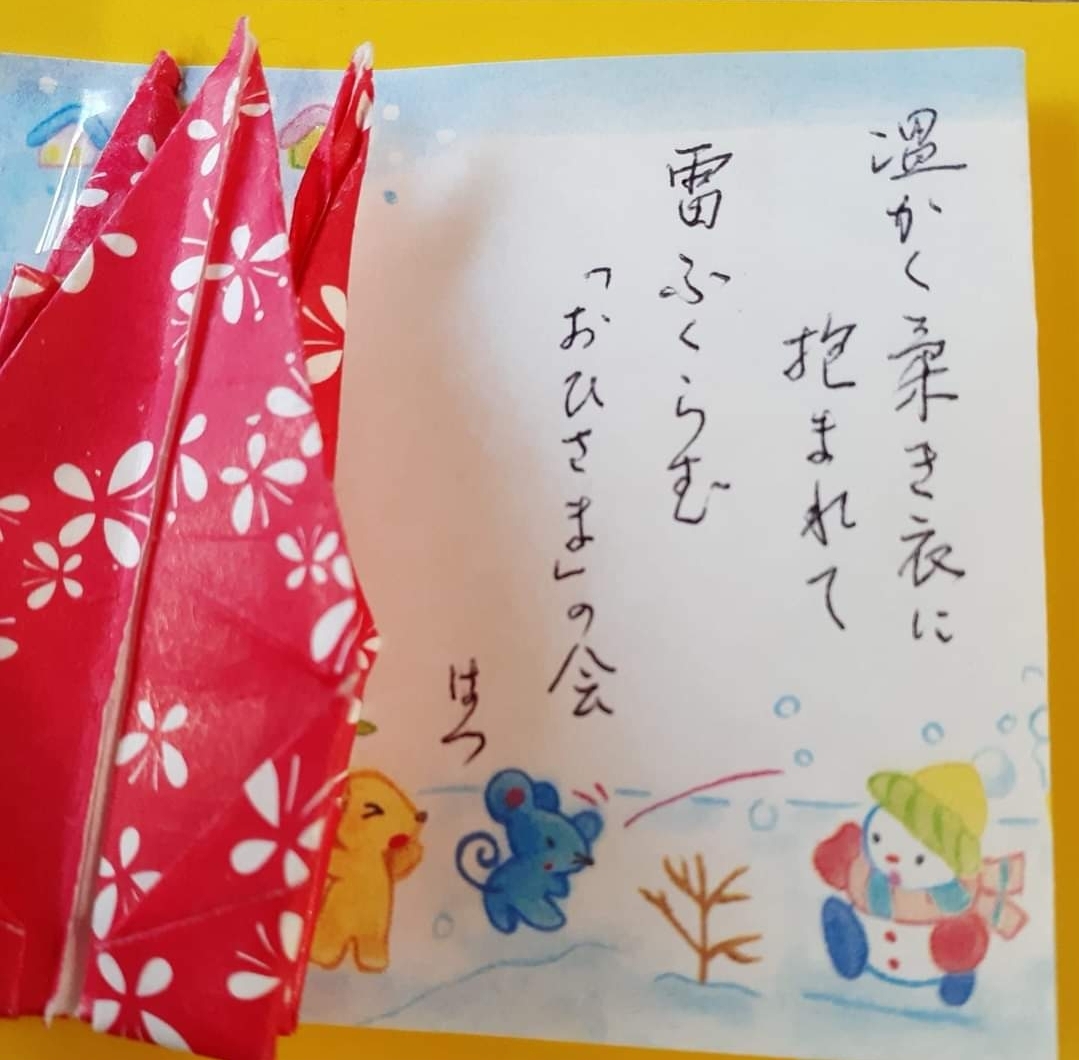 温かく柔き衣に
抱まれて
雷ふくらむ
「おひさま」の会
はつ